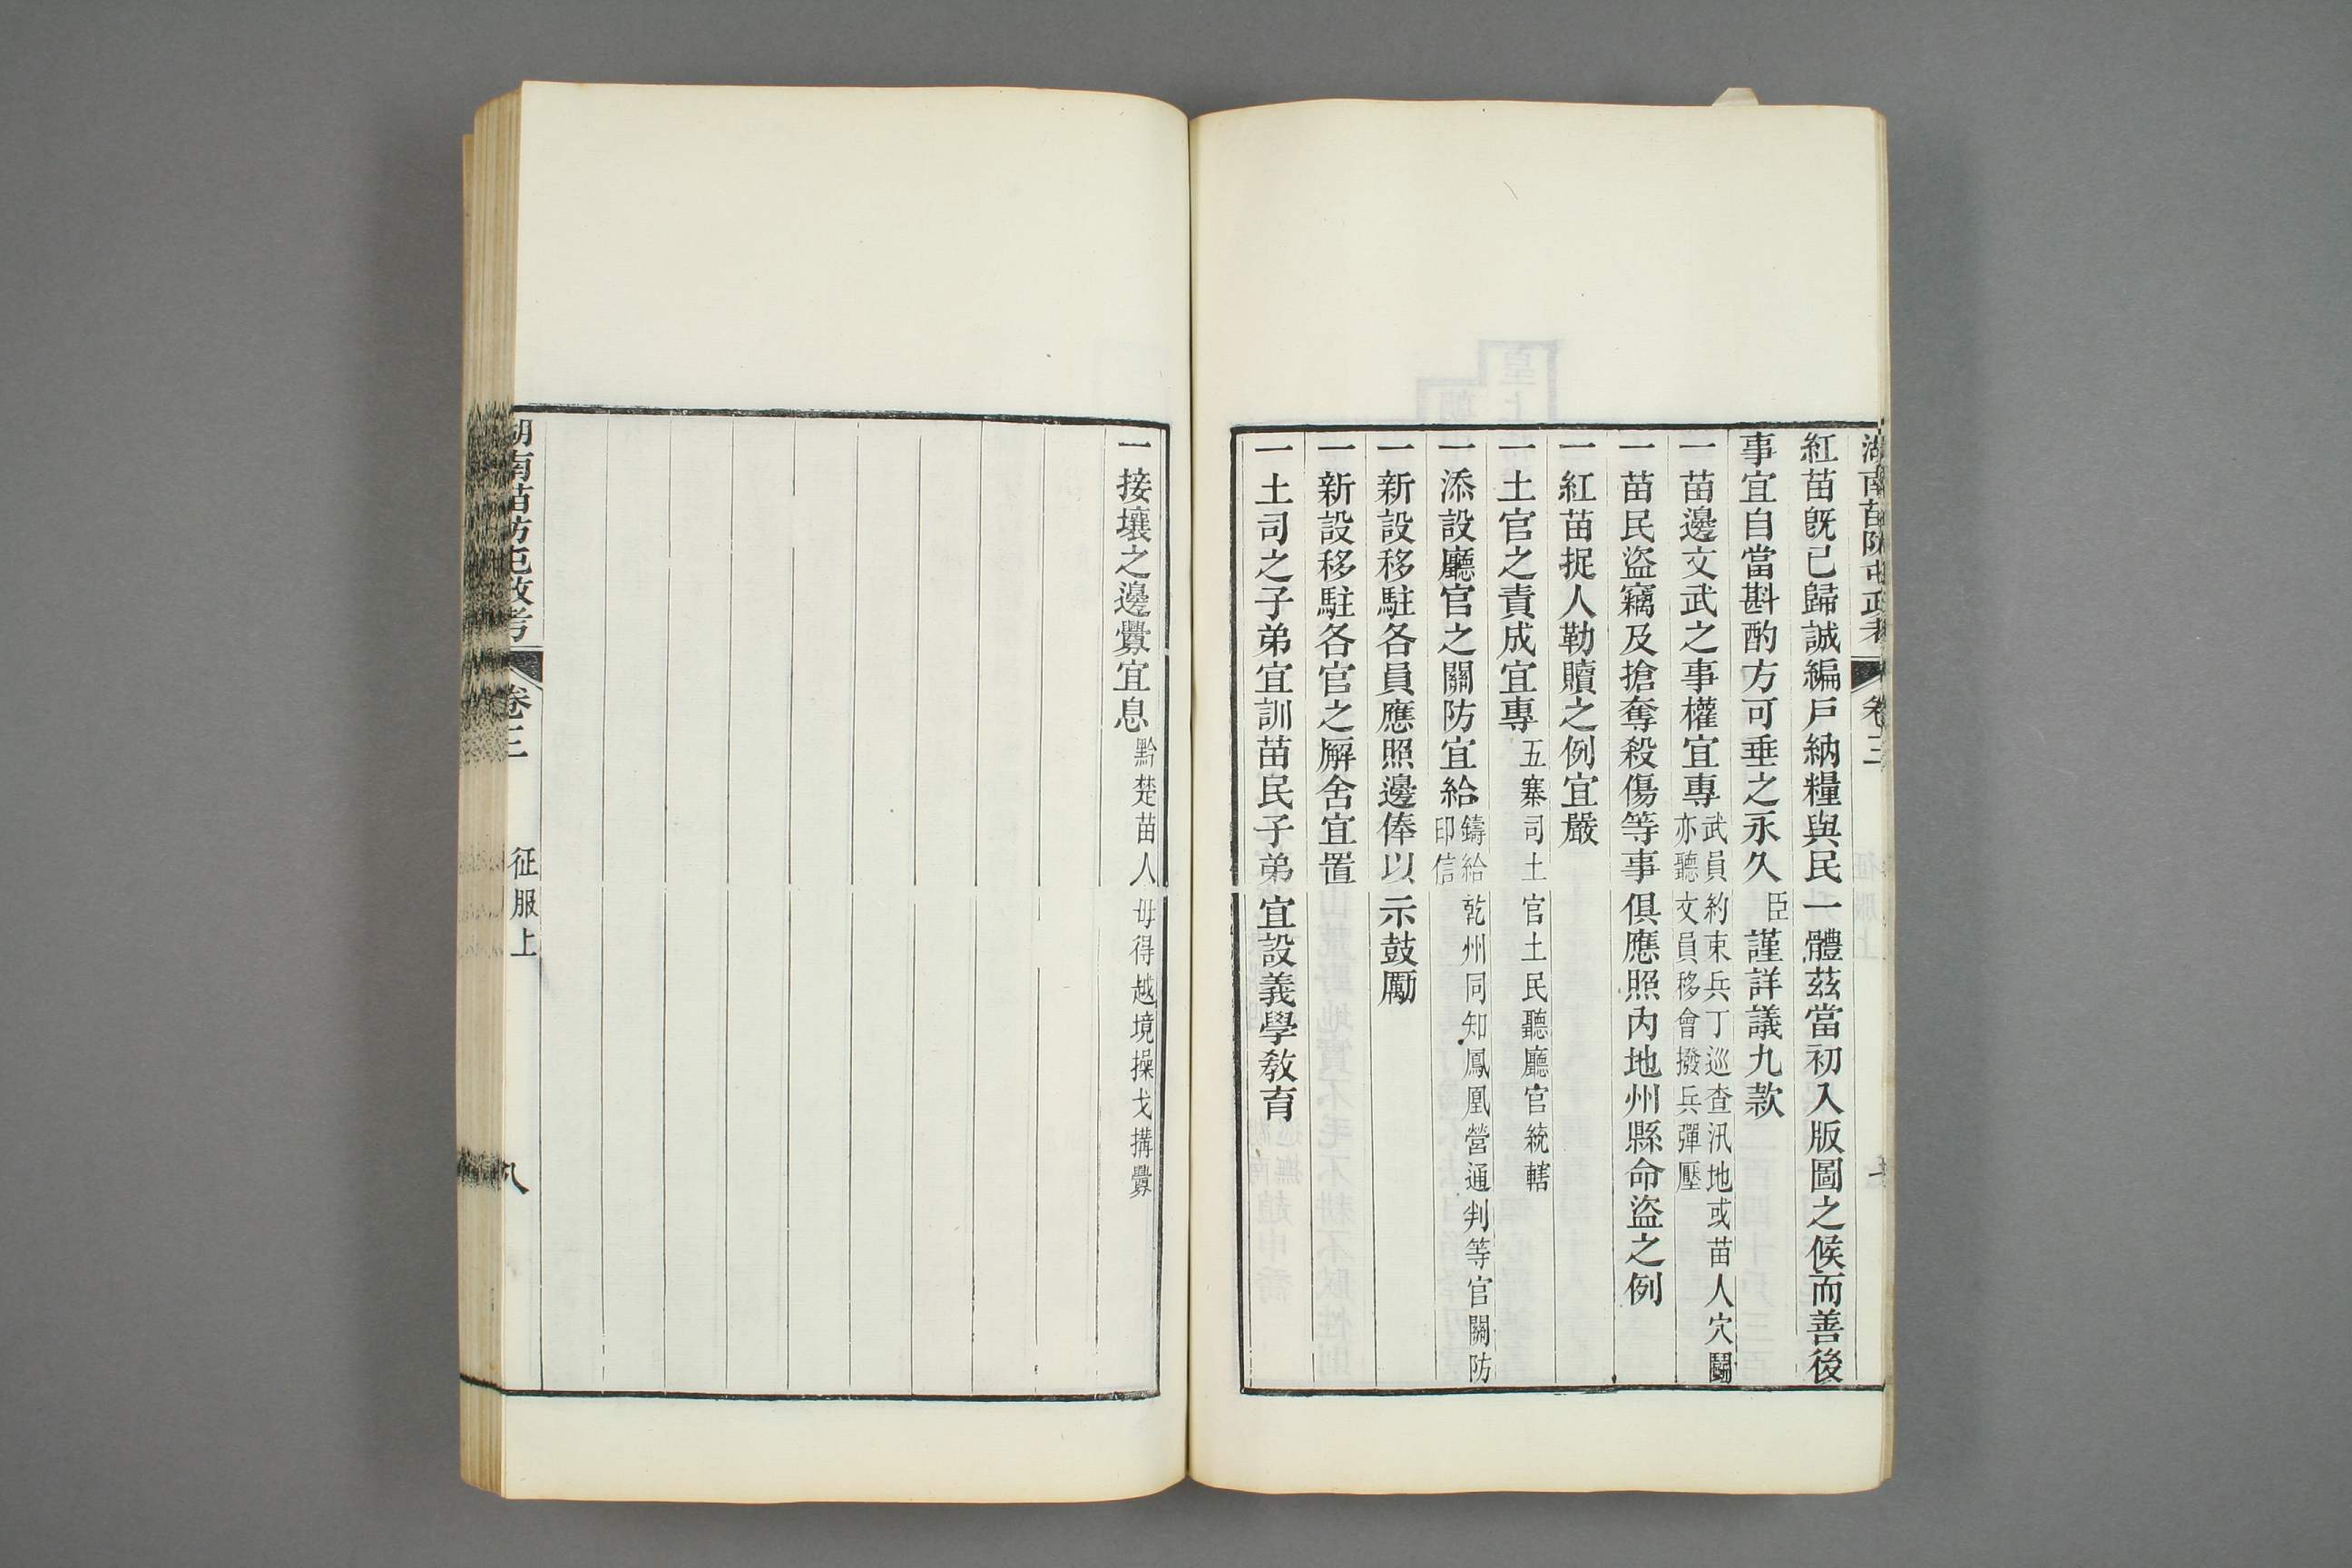 湖南苗防屯政考 卷三
紅苗旣已歸誠編戸納糧與民一體茲當初入版圖之候而善後
事宜自當斟酌方可垂之永久臣謹詳議九款
一苗邊文武之事權宜專武員約束兵丁巡查汛地或苗人穴鬭
亦聽文員移會撥兵彈壓
一苗民盜竊及搶奪殺傷等事俱應照內地州縣命盜之例
一紅苗捉人勒贖之例宜嚴
一土官之責成宜專五寨司土官土民聽廳官統轄
一添設廳官之關防宜給鑄給乾州同知鳳凰營通判等官關防
印信
一新設移駐各員應照邊俸以示鼓勵
一新設移駐各官之廨舍宜置
一土司之子弟宜訓苗民子弟宜設義學敎育
一接壤之邊釁宜息黔楚苗人毋得越境操戈搆釁
湖南苗防屯政考 卷三 征服上 八